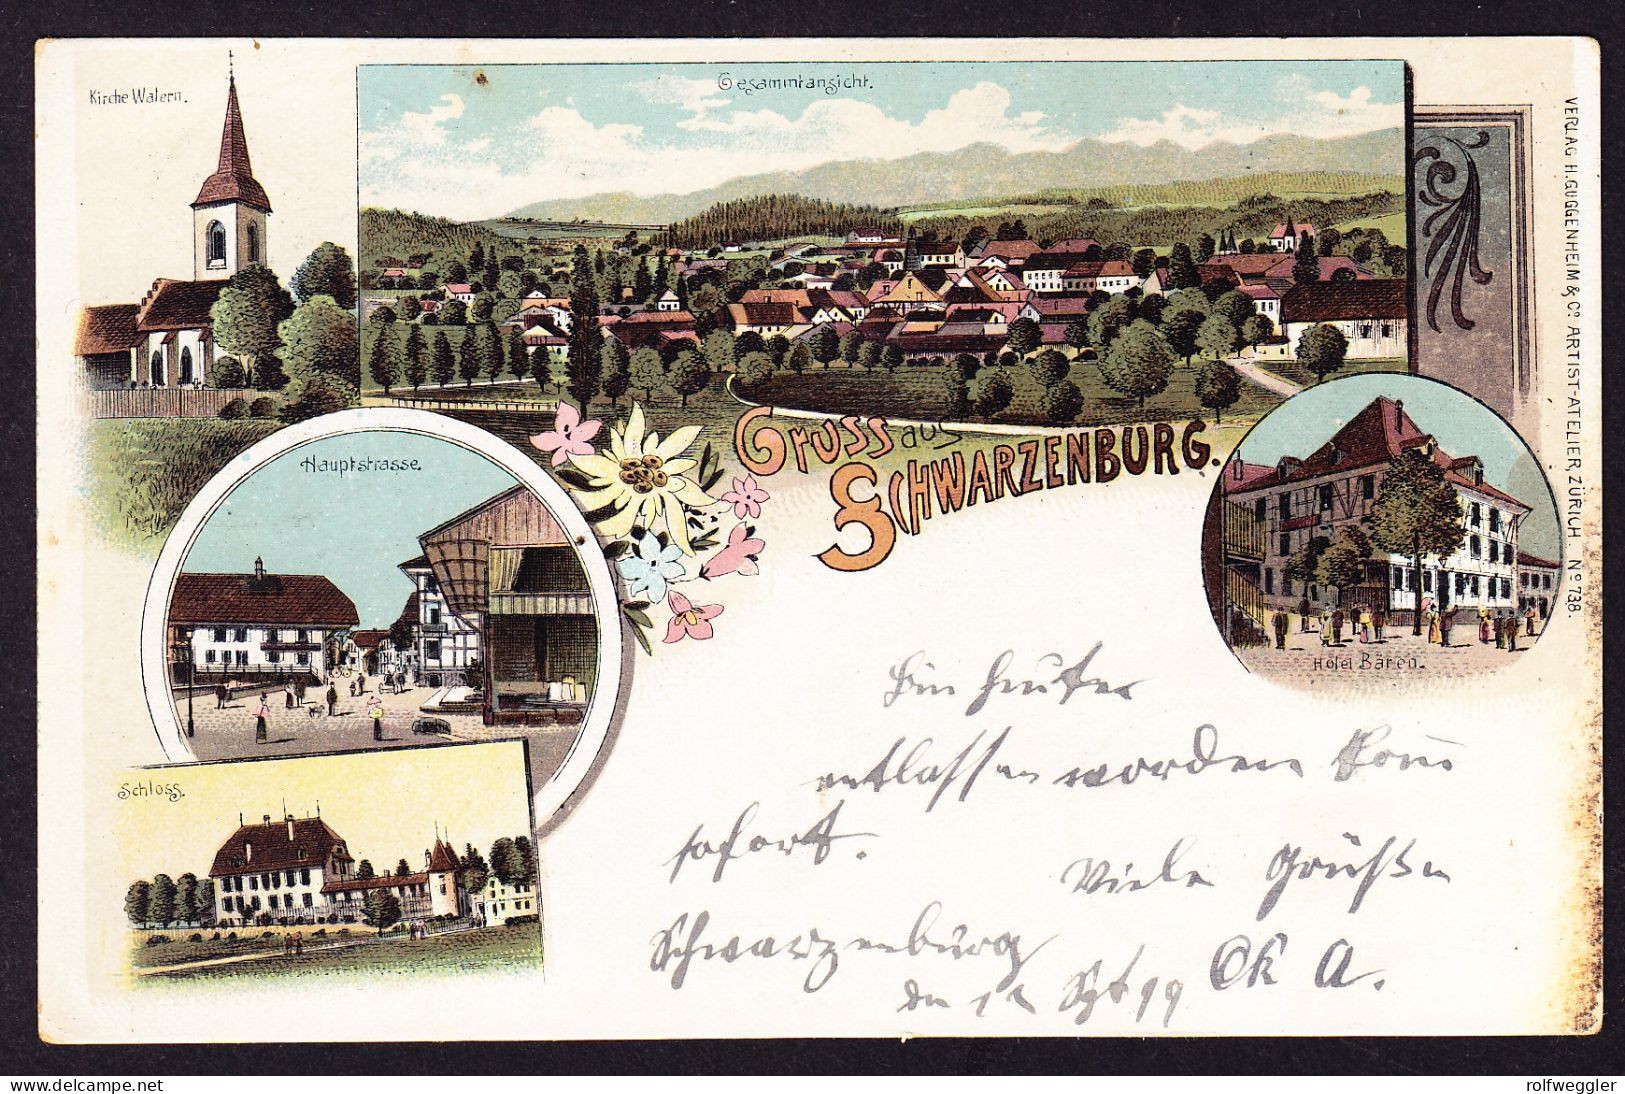 Kirche Walern.
Gesammtansicht.
Hauptstrasse.
Gruss aus
Schwarzenburg.
Hotel Bären.
Schloss.
VERLAG H. GUGGENHEIM & Cº. ARTIST-ATELIER, ZÜRICH. Nº 738.
Bin heute
entlassen worden
sofort.
Viele Grüße
Schwarzenburg
den Spt 99
delcampe.net
rolfweggler